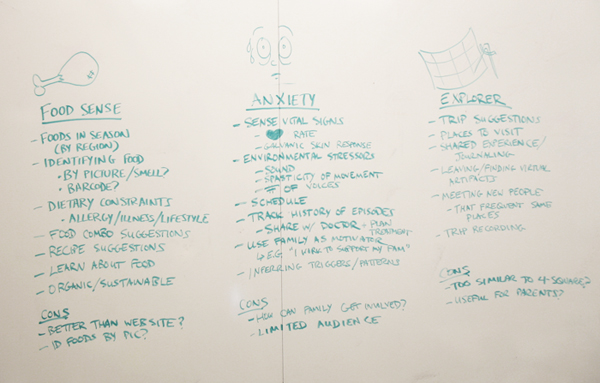 FOOD SENSE
- FOODS IN SEASON
(BY REGION)
- IDENTIFYING FOOD
• BY PICTURE/SMELL?
• BARCODE?
- DIETARY CONSTRAINTS
• ALLERGY/ILLNESS/LIFESTYLE
- FOOD COMBO SUGGESTIONS
- RECIPE SUGGESTIONS
- LEARN ABOUT FOOD
- ORGANIC/SUSTAINABLE
CONS
- BETTER THAN WEBSITE?
- ID FOODS BY PIC?
ANXIETY
- SENSE VITAL SIGNS
- ♥ RATE
- GALVANIC SKIN RESPONSE
- ENVIRONMENTAL STRESSORS
- SOUND
- SPASTICITY OF MOVEMENT
- # OF VOICES
- SCHEDULE
- TRACK HISTORY OF EPISODES
- SHARE W/ DOCTOR + PLAN
TREATMENT
- USE FAMILY AS MOTIVATOR
↳ E.G. "I WORK TO SUPPORT MY FAM"
- INFERRING TRIGGERS/PATTERNS
CONS
- HOW CAN FAMILY GET INVOLVED?
- LIMITED AUDIENCE
EXPLORER
- TRIP SUGGESTIONS
- PLACES TO VISIT
- SHARED EXPERIENCE/
JOURNALING
- LEAVING/FINDING VIRTUAL
ARTIFACTS
- MEETING NEW PEOPLE
- THAT FREQUENT SAME
PLACES
- TRIP RECORDING
CONS
- TOO SIMILAR TO 4-SQUARE?
- USEFUL FOR PARENTS?